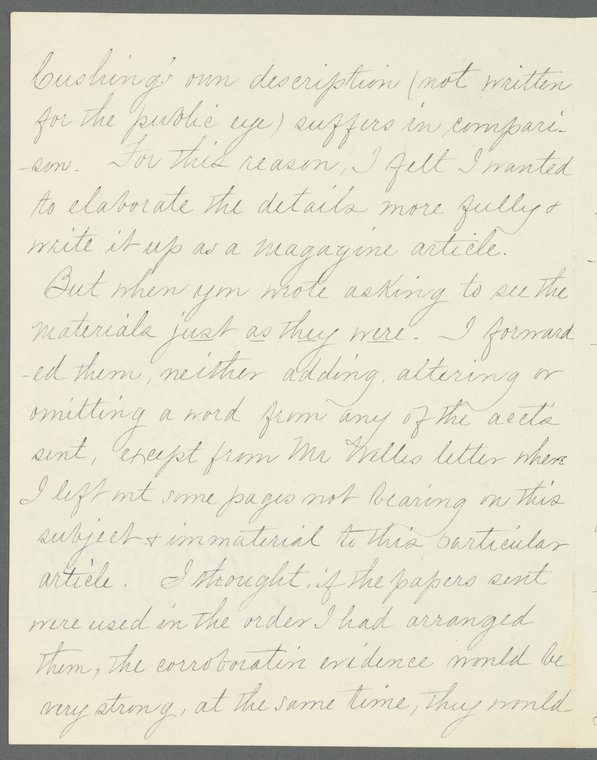 Cushing's own description (not written
for the public eye) suffers in compari-
-son. For this reason, I felt I wanted
to elaborate the details more fully &
write it up as a magazine article.
But when you wrote asking to see the
materials just as they were. I forward
-ed them, neither adding, altering or
omitting a word from any of the accts
sent, except from Mr Willis letter where
I left out some pages not bearing on this
subject & immaterial to this particular
article. I thought, if the papers sent
were used in the order I had arranged
them, the corroboratin evidence would be
very strong, at the same time, they would